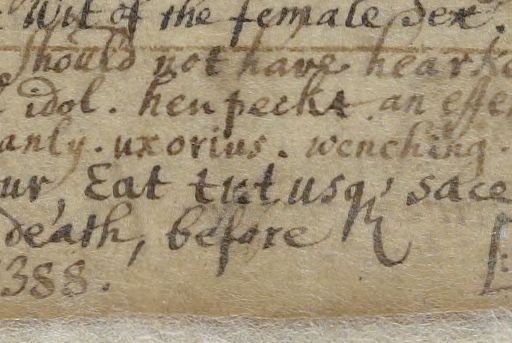 Wit of the female Sex.
should not have hearke
idol. henpeckt. an effe
anly. uxorius. wenching.
ur, Eat tutusq, sace
death, before
388.